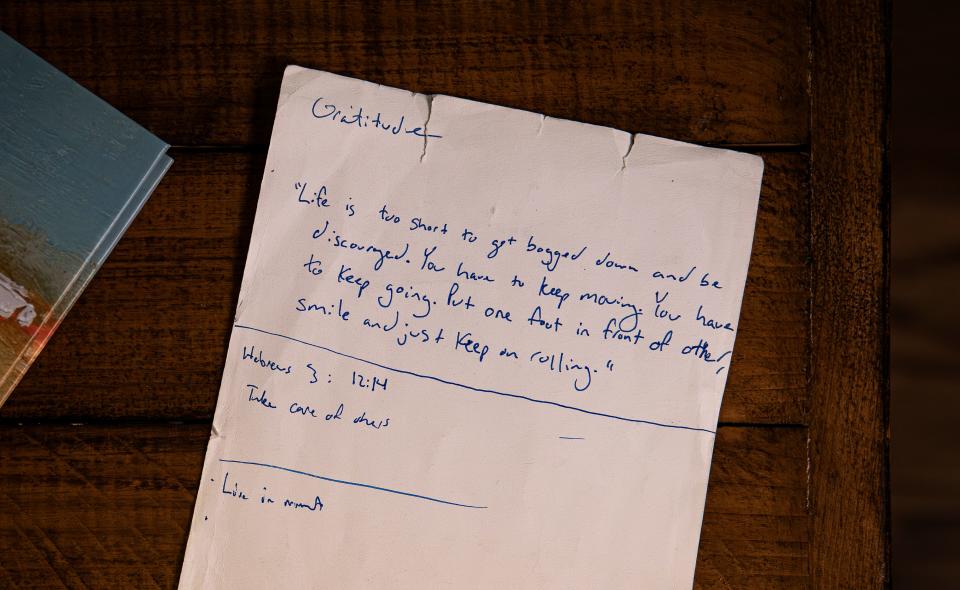 Gratitude
"Life is too short to get bogged down and be
discouraged. You have to keep moving. You have
to keep going. Put one foot in front of other,
smile and just keep on rolling."
Hebrews 3: 12:14
Take care of others
Live in moment